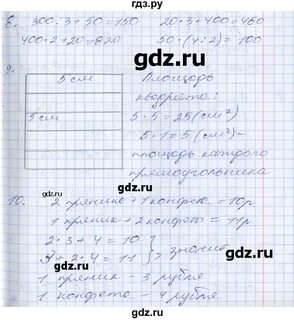 8. 300:3+50=150 20·3+400=460
400·2+20=820 50·(4:2)=100
9.
5 см
5 см
Площадь
квадрата:
5·5=25(см²)
5·1=5(см²)-
площадь каждого
прямоугольника
10. 2 пряник+1 конфета=10р
1 пряник+2 конфеты=11р
2·3+4=10
3+2·4=11
} значит
1 пряник-3 рубля
1 конфета-4 рубля
gdz.ru
gdz.ru
gdz.ru
gdz.ru
gdz.ru